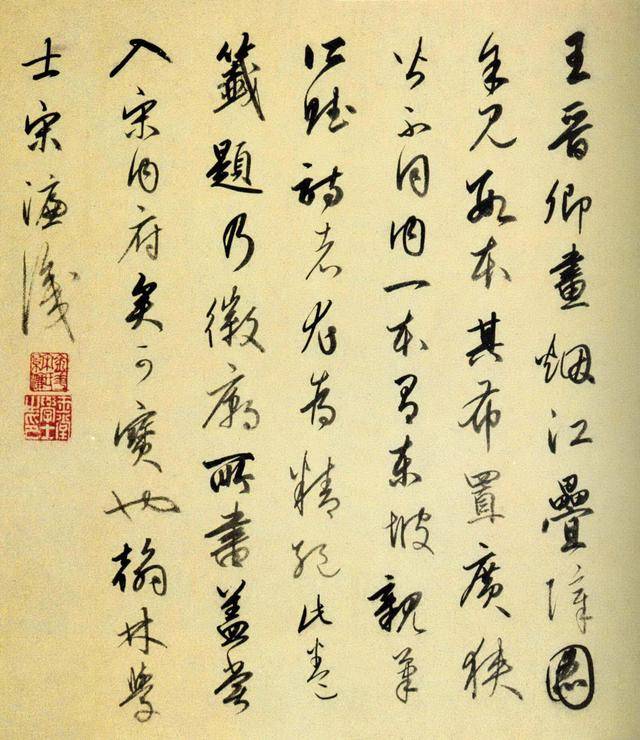 王晉卿畫烟江疊障圖
余見数本其布置廣狹
皆不同内一本有東坡親筆
所賦詩者尤為精絕此卷
籤題乃徽廟所書蓋嘗
入宋内府矣可寶也翰林學
士宋濂識